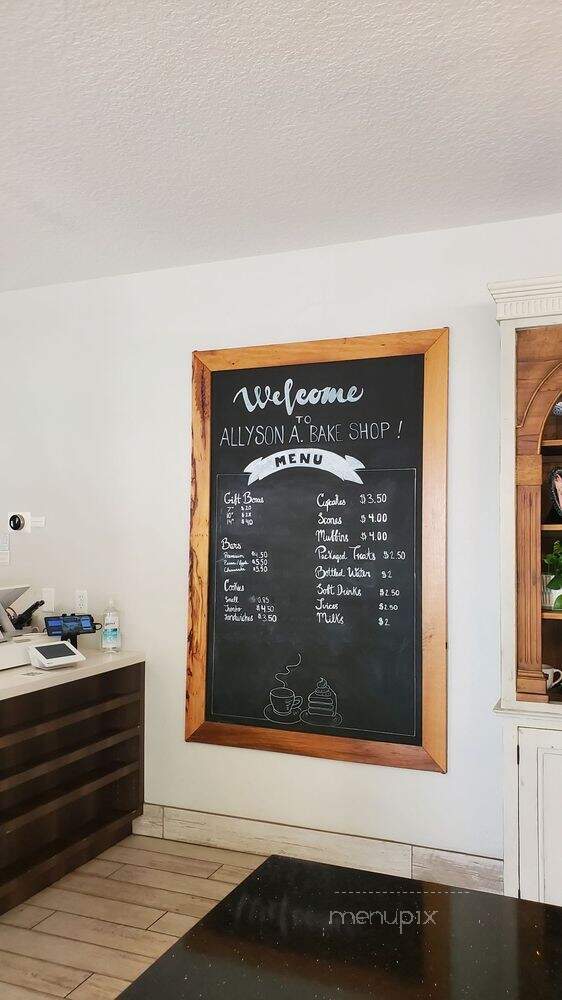 Welcome
TO
ALLYSON A. BAKE SHOP !
MENU
Gift Boxes
7" $20
10" $28
14" $40
Bars
Premium $4.50
$5.50
$3.50
Cookies
Small 0.85
Jumbo $4.50
Sandwiches $3.50
Cupcakes $3.50
Scones $4.00
Muffins $4.00
Packaged Treats $2.50
Bottled Water $2
Soft Drinks $2.50
Juices $2.50
Milks $2
menupix